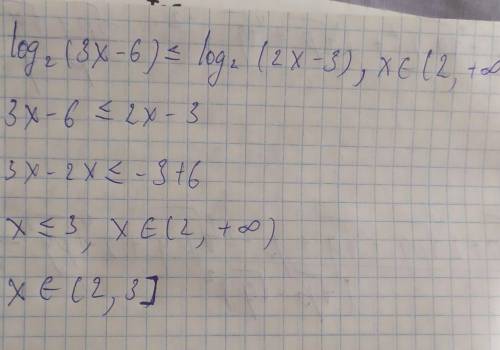 log₂(3x-6) ≤ log₂ (2x-3), x∈(2, +∞
3x-6 ≤ 2x-3
3x-2x ≤ -3+6
x ≤ 3, x∈(2, +∞)
x ∈ (2, 3]